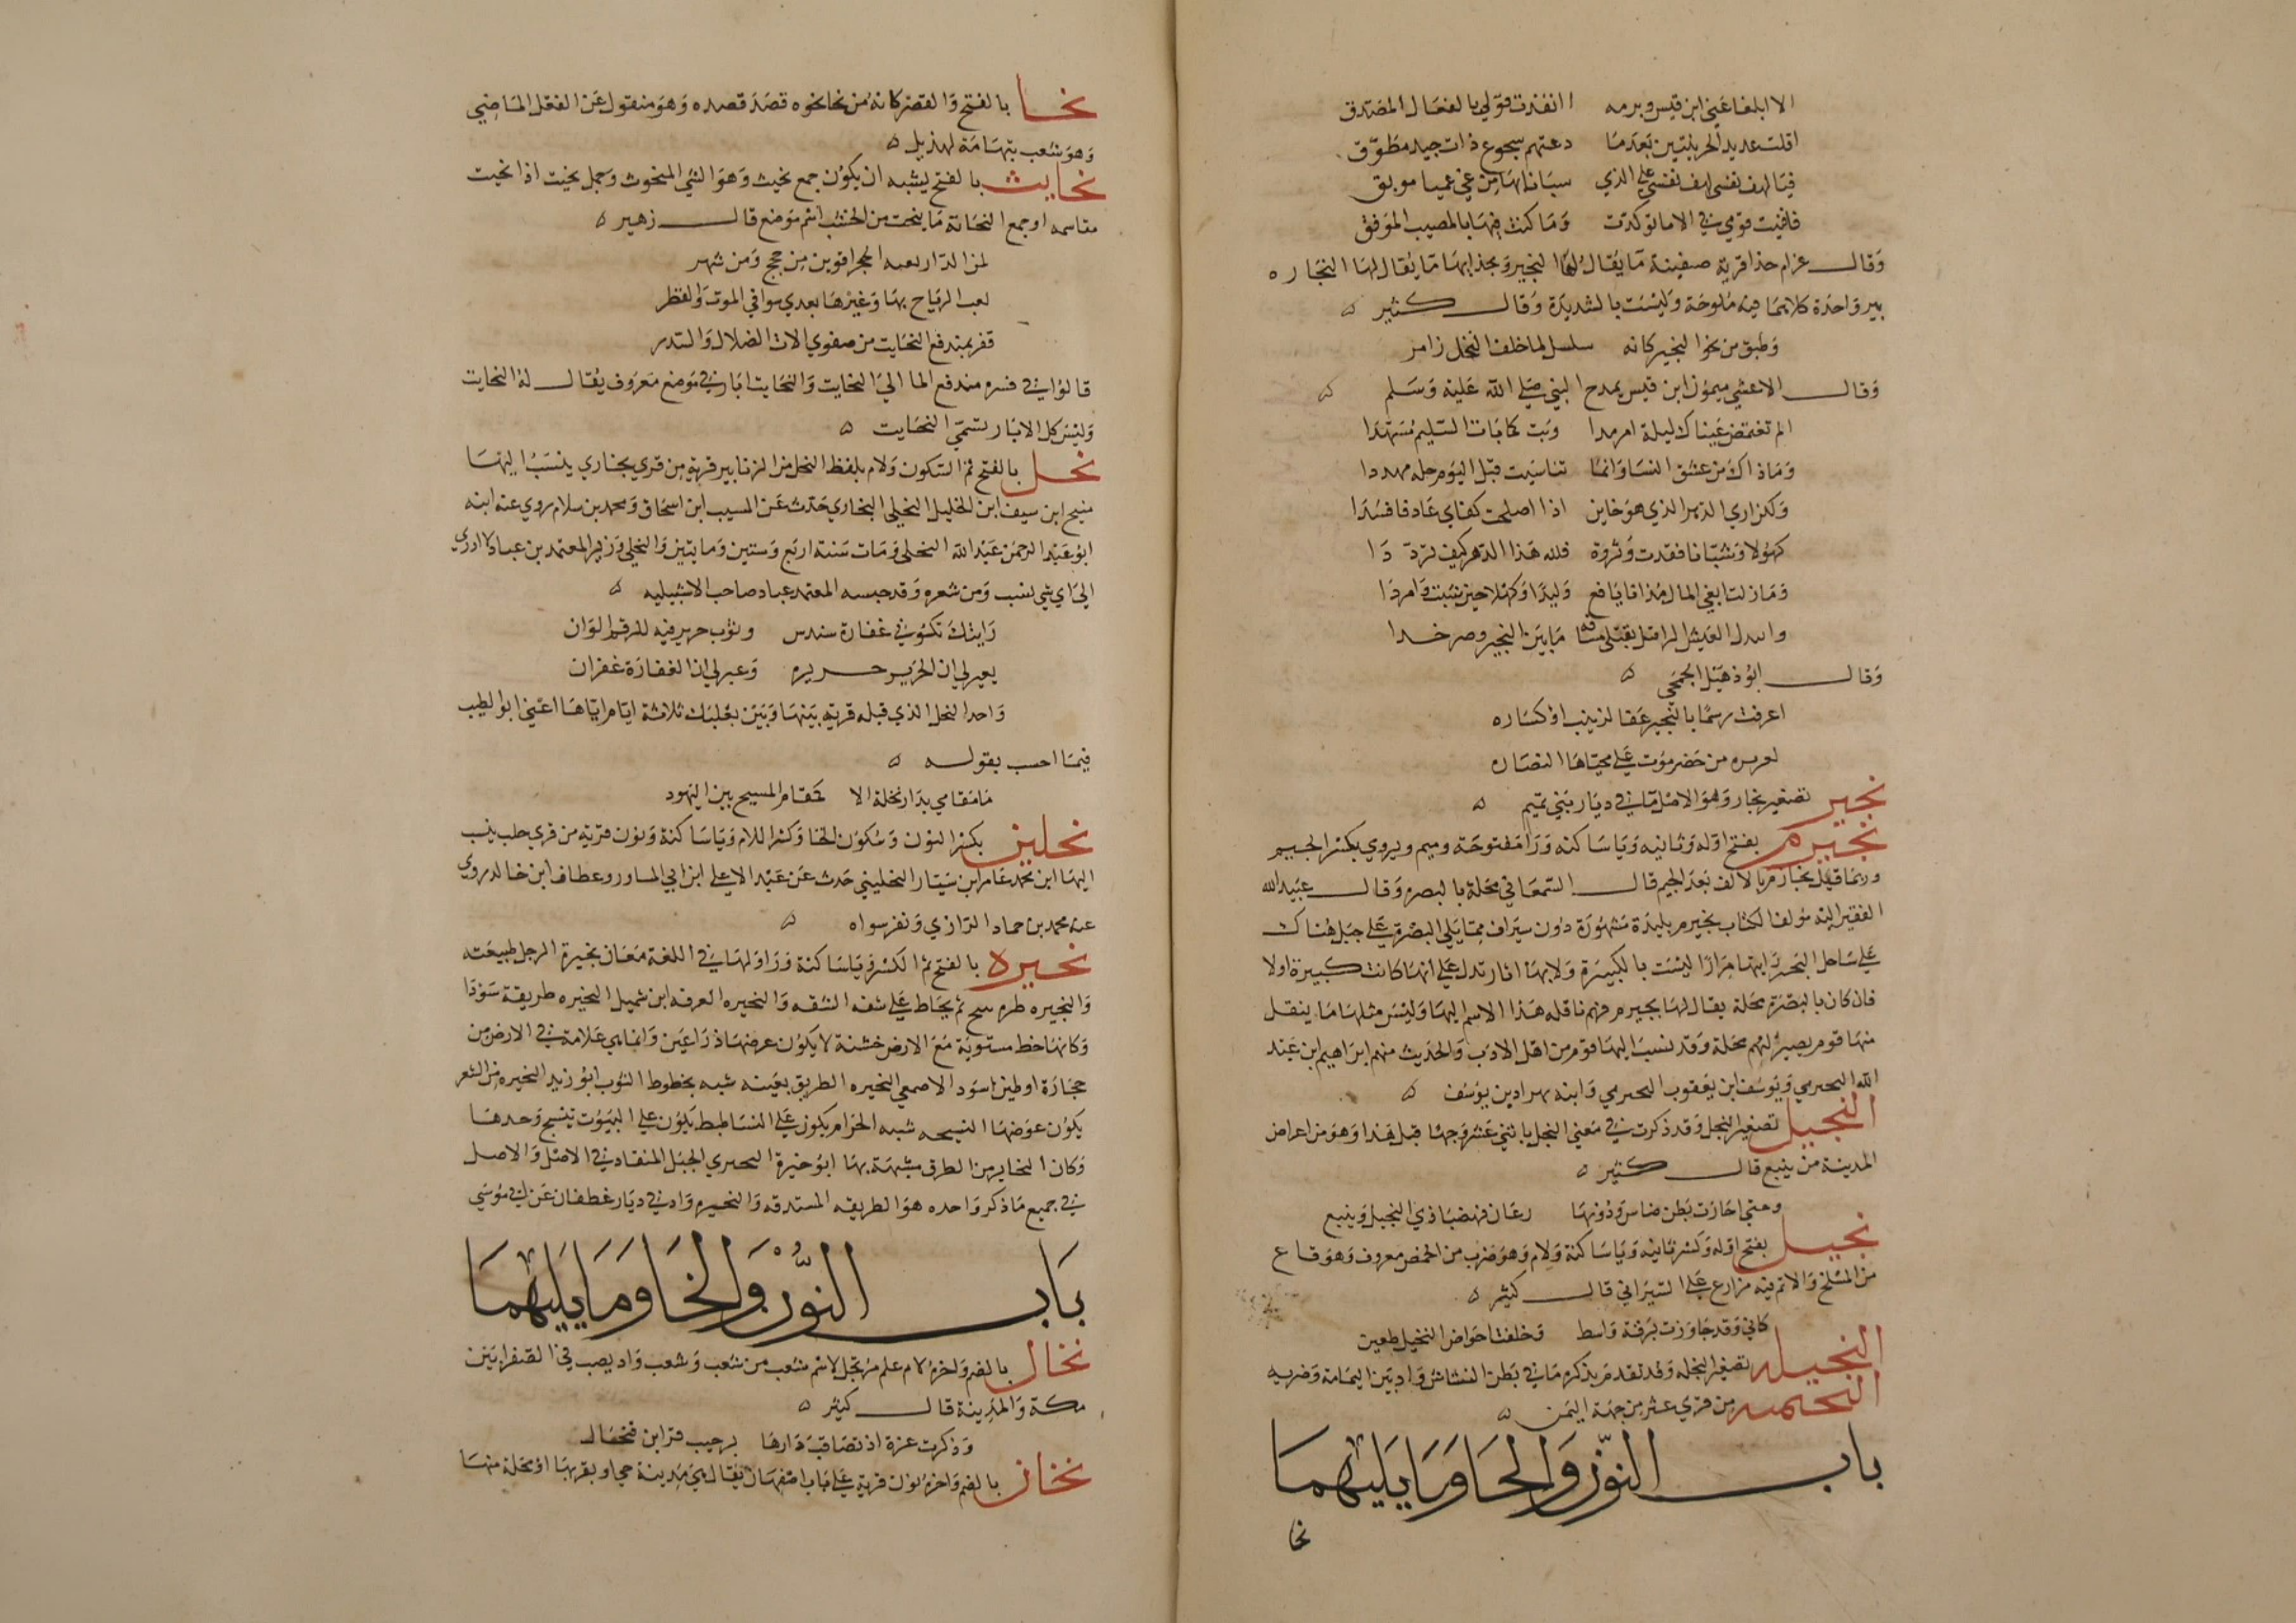 الا ابلغا عني ابن قيس وبرمه اانفذت قولي بالفعال المصدق
اقلت عديد الحربيتين بعدما دعتهم سجوع ذات جيد مطوق
فيا لهف نفسي لهف نفسي على الذي
قومي في الاما توكدت وما كنت فيها بالمصيب الموفق
وقال عرام حذا قرية صفينة ما يقال لها النجير وبحذايها ما يقال لها النجاره
بير واحدة كلاهما فيه ملوحة وليست بالشديدة وقال كثير
وطبق من نحو النجير كانه سلسل لما خلف النخل زامر
وقال الاعشي ميمون ابن قيس يمدح النبي صلى الله عليه وسلم
الم تغتمض عيناك ليلة ارمدا وبت كما بات السليم مسهدا
وما ذاك من عشق النسا وانما تناسيت قبل اليوم
ولكن اري الدهر الذي هو خاين اذا اصلحت كفاي عاد فافسدا
كهولا وشبانا فقدت وثروة فلله هذا الدهر كيف ترددا
وما زلت ابغي المال مذ انا يافع وليدا وكهلا حين شبت وامردا
ما بين النجير وصرخدا
وقال ابو ذهبل الجمحي
اعرفت رسما بالنجير عفا لزينب او لساره
من حضرموت على محياها النضاره
نجير تصغير نجار وهو الاصل ما في ديار بني تميم
نجيرم بفتح اوله وثانيه ويا ساكنه ورا مفتوحة وميم ويروي بكسر الجيم
وربما قيل نجارم بالالف بعد الجيم قال السمعاني محلة بالبصره وقال عبيد الله
الفقير اليه مؤلف الكتاب نجيرم بليدة مشهورة دون سيراف مما يلي البصرة على جبل هناك
على ساحل البحر رايتها مرارا ليست بالكبيرة ولا بها اثار تدل على انها كانت كبيرة اولا
فان كان بالبصرة محلة يقال لها نجيرم فهم ناقله هذا الاسم اليها وليس مثلها ما ينقل
منها قوم يصير لهم محلة وقد نسب اليها قوم من اهل الادب والحديث منهم ابراهيم ابن عبد
الله النجيرمي ويوسف ابن يعقوب النجيرمي وابنه بهزاد بن يوسف
النجيل تصغير النجل وقد ذكرت في معني النجل باثني عشر وجها قبل هذا وهو من اعراض
المدينة من ينبع قال كثير
وحتي اجازت بطن ضاس ودونها رعان فهضبا ذي النجيل وينبع
نجيل بفتح اوله وكسر ثانيه ويا ساكنة ولام وهو ضرب من الحمض معروف وهو قاع
من المسلح والاتم فيه مزارع على السيراني قال كثير
كاني وقد جاوزت برقة واسط وخلفت احواض النجيل طعين
النجيله تصغير النجله وقد تقدم ذكره ما في بطن النشاش واد بين اليمامة وضريه
من قري عثر من جهة اليمن
باب النون والحا وما يليهما
نحا
نحا بالفتح والقصر كانه من نحا نحوه قصد قصده وهو منقول عن الفعل الماضي
وهو شعب بتهامة لهذيل
نحايت بالفتح يشبه ان يكون جمع نحيت وهو الشي المنحوت وجمل نحيت اذا نحيت
مناسمه او جمع النحاتة ما ينحت من الخشب اسم موضع قال زهير
من حجج ومن شهر
لعب الرياح بها وغيرها بعدي سوافي المور والقطر
قفر بمندفع النحايت من صفوي الات الضال والسدر
قالوا في فسره مندفع الما الي النحايت والنحايت ابار في موضع معروف يقال له النحايت
وليس كل الابار تسمي النحايت
نحل بالفتح ثم السكون ولام بلفظ النحل من الزنابير قرية من قري بخاري ينسب اليها
منيح ابن سيف ابن الخليل النحلي البخاري حدث عن المسيب ابن اسحاق ومحمد بن سلام روي عنه ابنه
ابو عبد الرحمن عبد الله النحلي ومات سنة اربع وستين ومايتين والنحلي وزير المعتمد بن عباد لا ادري
الي اي شي نسب ومن شعره وقد حبسه المعتمد عباد صاحب الاشبيليه
رايتك تكسوني غفارة سندس وثوب حرير فيه للرقم الوان
يعبر لي ان الحرير حريره وعبر لي ان الغفارة غفران
واحد النحل الذي قبله قرية بينها وبين بعلبك ثلاثة ايام اياها اعني ابو الطيب
فيما احسب بقوله
ما مقامي بدار نحلة الا كمقام المسيح بين اليهود
نحلين بكسر النون وسكون الحا وكسر اللام ويا ساكنة ونون قرية من قري حلب ينسب
اليها ابن محمد عامر ابن سيار النحليني حدث عن عبد الاعلى ابن ابي المساور وعطاف ابن خالد روي
عنه محمد بن حماد الرازي ونفر سواه
نحيرة بالفتح ثم الكسر ويا ساكنة ورا ولها في اللغة معان نحيرة الرجل طبيعته
والنحيره ثم يخاط على شفه الشقه والنحيره العرقه ابن شميل النحيره طريقة سودا
وكانها خط مستوية مع الارض خشنة لا يكون عرضها ذراعين وانما هي علامة في الارض من
حجارة او طين اسود الاصمعي النحيره الطريق بعينه شبه بخطوط الثوب ابو زيد النحيره من الشعر
يكون عرضها شبه الحزام يكون على يكون على البيوت تنسج وحدها
وكان النحاير من الطرق مشبهة بها ابو خيرة الجبل المنقاد في الاصل والاصل
في جميع ما ذكر واحده هو الطريقه المستدقه والنحيره واد في ديار غطفان عن ابي موسي
باب النون والخا وما يليهما
نخال بالضم واخره لام علم مرتجل لاسم شعب من شعب وشعب واد يصب في الصفرا بين
مكة والمدينة قال كثير
وذكرت عزة اذ تصاقب دارها برحيب فنخال
نخان بالضم واخره نون قرية على باب اصفهان يقال هي مدينة جي او بقربها او محلة منها